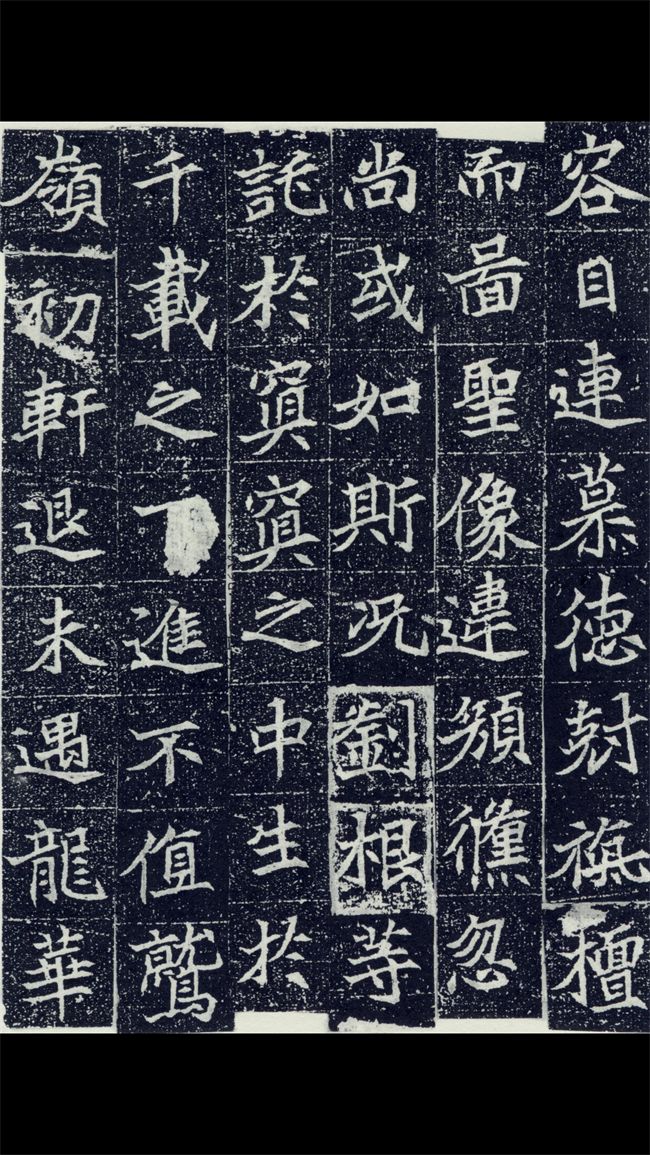 容目連慕徳尅旃檀
而啚聖像違顏儵忽
尚或如斯况劉根等
託於冥冥之中生於
千載之下進不值鷲
嶺初軒退未遇龍華